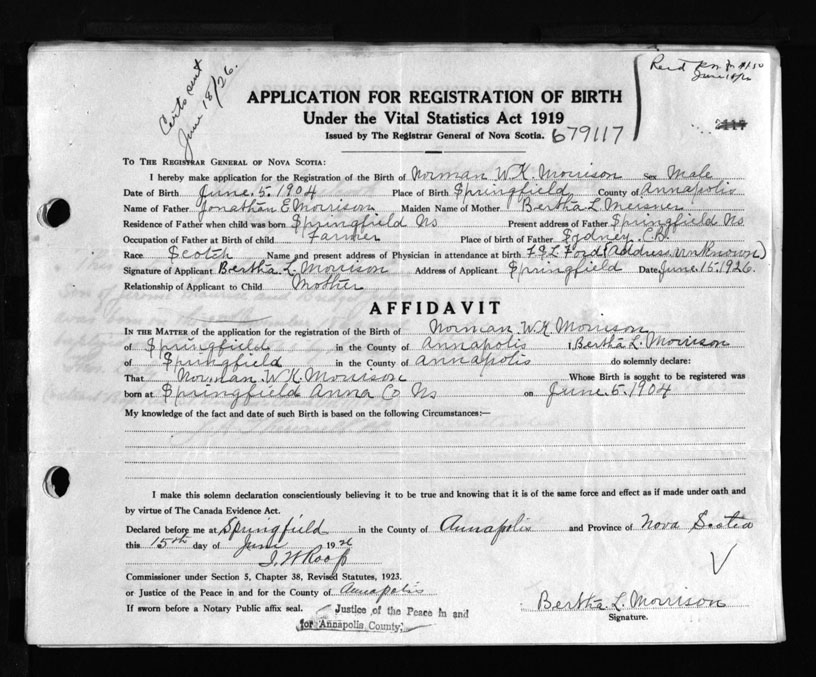 Certs sent
June 18/26.
June 18/26
APPLICATION FOR REGISTRATION OF BIRTH
Under the Vital Statistics Act 1919
Issued by The Registrar General of Nova Scotia.
679117
2117
TO THE REGISTRAR GENERAL OF NOVA SCOTIA:
I hereby make application for the Registration of the Birth of Norman W.K. Morrison Sex Male
Date of Birth June. 5. 1904 Place of Birth Springfield County of Annapolis
Name of Father Jonathan E Morrison Maiden Name of Mother Bertha L Meisner
Residence of Father when child was born Springfield Ns Present address of Father Springfield Ns
Occupation of Father at Birth of child Farmer Place of birth of Father Sydney. C.B.
Race Scotch Name and present address of Physician in attendance at birth Ford (Address unknown)
Signature of Applicant Bertha L. Morrison Address of Applicant Springfield Date June. 15. 1926.
Relationship of Applicant to Child Mother
AFFIDAVIT
IN THE MATTER of the application for the registration of the Birth of Norman. W.K. Morrison
of Springfield in the County of Annapolis I, Bertha L. Morrison
of Springfield in the County of Annapolis do solemnly declare:
That Norman. W.K. Morrison Whose Birth is sought to be registered was
born at Springfield Anna Co Ns on June. 5. 1904
My knowledge of the fact and date of such Birth is based on the following Circumstances:—
I make this solemn declaration conscientiously believing it to be true and knowing that it is of the same force and effect as if made under oath and
by virtue of The Canada Evidence Act.
Declared before me at Springfield in the County of Annapolis and Province of Nova Scotia
this 15th day of June 1926
Commissioner under Section 5, Chapter 38, Revised Statutes, 1923.
or Justice of the Peace in and for the County of Annapolis
If sworn before a Notary Public affix seal. Justice of the Peace in and
for Annapolis County.
Bertha. L. Morrison
Signature.